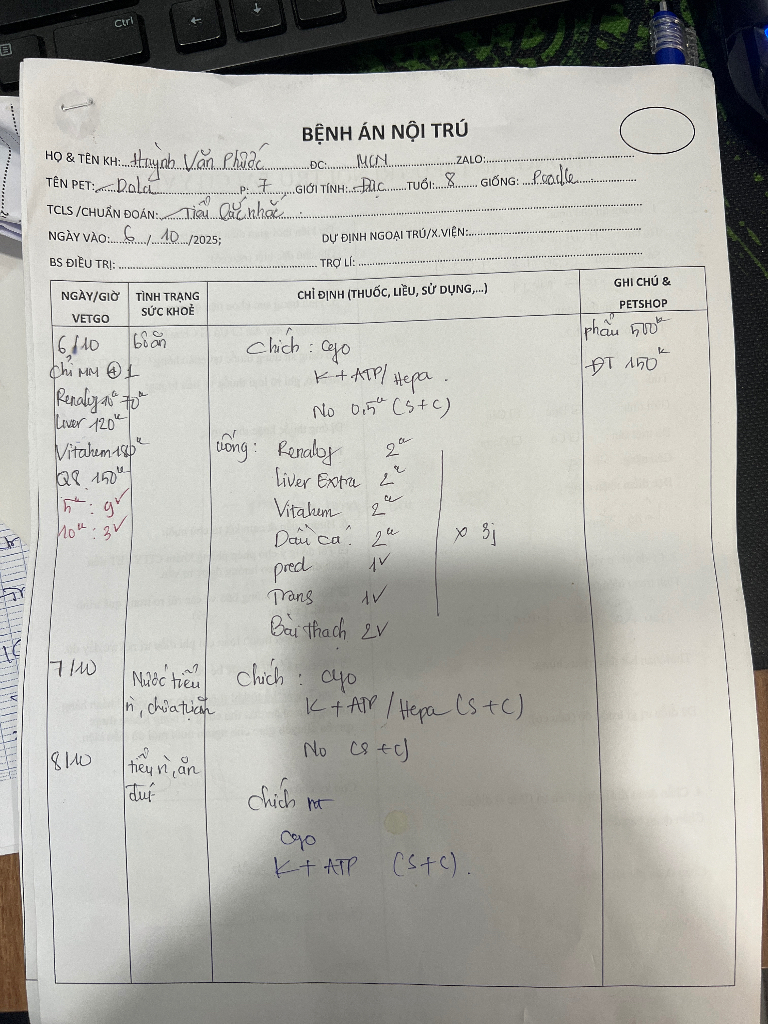 Ctrl
BỆNH ÁN NỘI TRÚ
HỌ & TÊN KH: Huỳnh Văn Phước ĐC: MCN ZALO:
TÊN PET: Dola P: 7 GIỚI TÍNH: Đực TUỔI: 8 GIỐNG: Poodle
TCLS /CHUẨN ĐOÁN: Tiểu Dắt nhắt
NGÀY VÀO: 6 / 10 /2025; DỰ ĐỊNH NGOẠI TRÚ/X.VIỆN:
BS ĐIỀU TRỊ: TRỢ LÍ:
NGÀY/GIỜ VETGO
TÌNH TRẠNG SỨC KHOẺ
CHỈ ĐỊNH (THUỐC, LIỀU, SỬ DỤNG,...)
GHI CHÚ & PETSHOP
6/10
MM
Renalog 70k
Liver 120k
Vitahem
Q8 150k
5k: 9v
10k: 3v
bỏ ăn
Chích:
K + ATP / Hepa.
No 0,5 (S+C)
uống: Renalog 2
Liver Extra 2
Vitahem 2
Dầu cá: 2
pred 1v
Trans 1v
Bài thạch 2v
x 3j
phẫu 500k
ĐT 150k
7/10
Nước tiểu rỉ, chưa tự ăn
Chích:
K + ATP / Hepa (S+C)
No (S+C)
8/10
tiểu rỉ, ăn được
Chích
K + ATP (S+C).